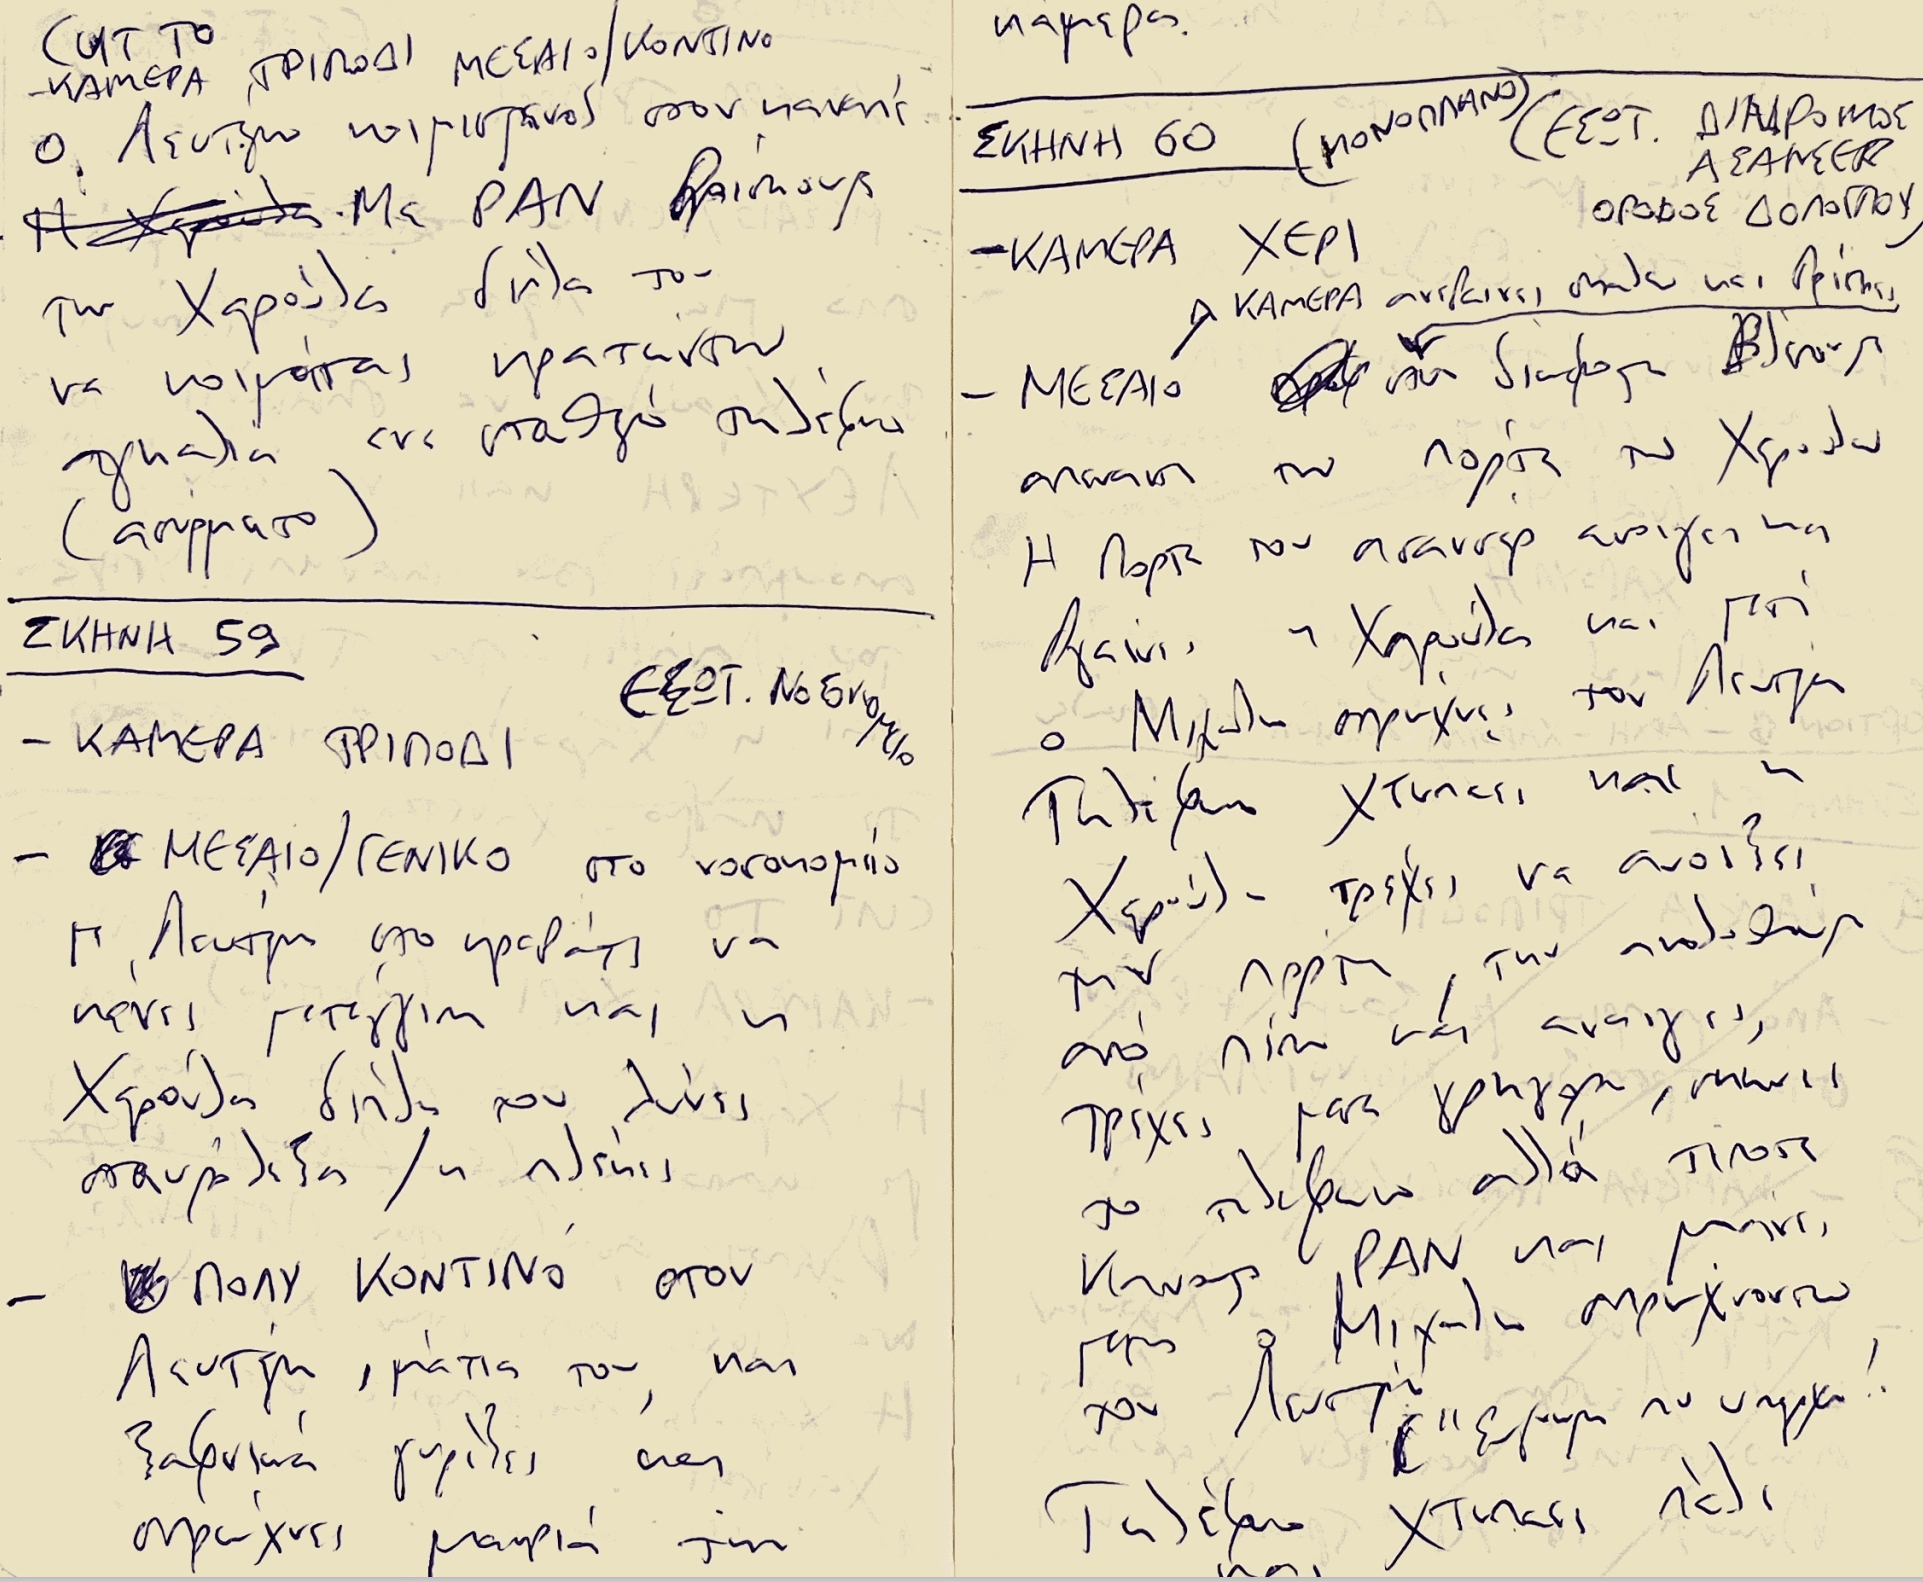 CUT TO
-ΚΑΜΕΡΑ ΤΡΙΠΟΔΙ ΜΕΣΑΙΟ/ΚΟΝΤΙΝΟ
Ο Λευτέρη κοιμισμένος στον καναπέ
Με PAN βρίσκουμε
την Χαρούλα δίπλα του
να κοιμάται κρατώντας
αγκαλιά ένα σταθερό τηλέφωνο
(ασύρματο)
ΣΚΗΝΗ 59
ΕΣΩΤ. ΝΟΣΟΚΟΜΕΙΟ
- ΚΑΜΕΡΑ ΤΡΙΠΟΔΙ
- ΜΕΣΑΙΟ/ΓΕΝΙΚΟ στο νοσοκομείο
Η Λευτέρη στο κρεβάτι να
κάνει μετάγγιση και η
Χαρούλα δίπλα του λύνει
σταυρόλεξα / η πλέκει
- ΠΟΛΥ ΚΟΝΤΙΝΟ στον
Λευτέρη, μάτια του, και
ξαφνικά γυρίζει και
σπρώχνει μακριά την
κάμερα.
ΣΚΗΝΗ 60 (ΜΟΝΟΠΛΑΝΟ) (ΕΣΩΤ. ΔΙΑΔΡΟΜΟΣ
ΑΣΑΝΣΕΡ
ΟΡΟΦΟΣ
-ΚΑΜΕΡΑ ΧΕΡΙ
ΚΑΜΕΡΑ ανεβαίνει σκάλα και βρίσκει
- ΜΕΣΑΙΟ στον διάδρομο βλέπουμε
απέναντι την πόρτα της Χαρούλας
Η Πόρτα του ασανσέρ ανοίγει και
βγαίνει η Χαρούλα και μετά
ο Μιχάλης σπρώχνει τον Λευτέρη
Τηλέφωνο χτυπάει και η
Χαρούλα τρέχει να ανοίξει
την πόρτα, την ακολουθούμε
από πίσω και ανοίγει,
τρέχει μέσα γρήγορα, σηκώνει
το τηλέφωνο αλλά τίποτα
Κάνουμε PAN και μπαίνει
μέσα ο Μιχάλης σπρώχνοντας
τον Λευτέρη
Τηλέφωνο χτυπάει πάλι
και